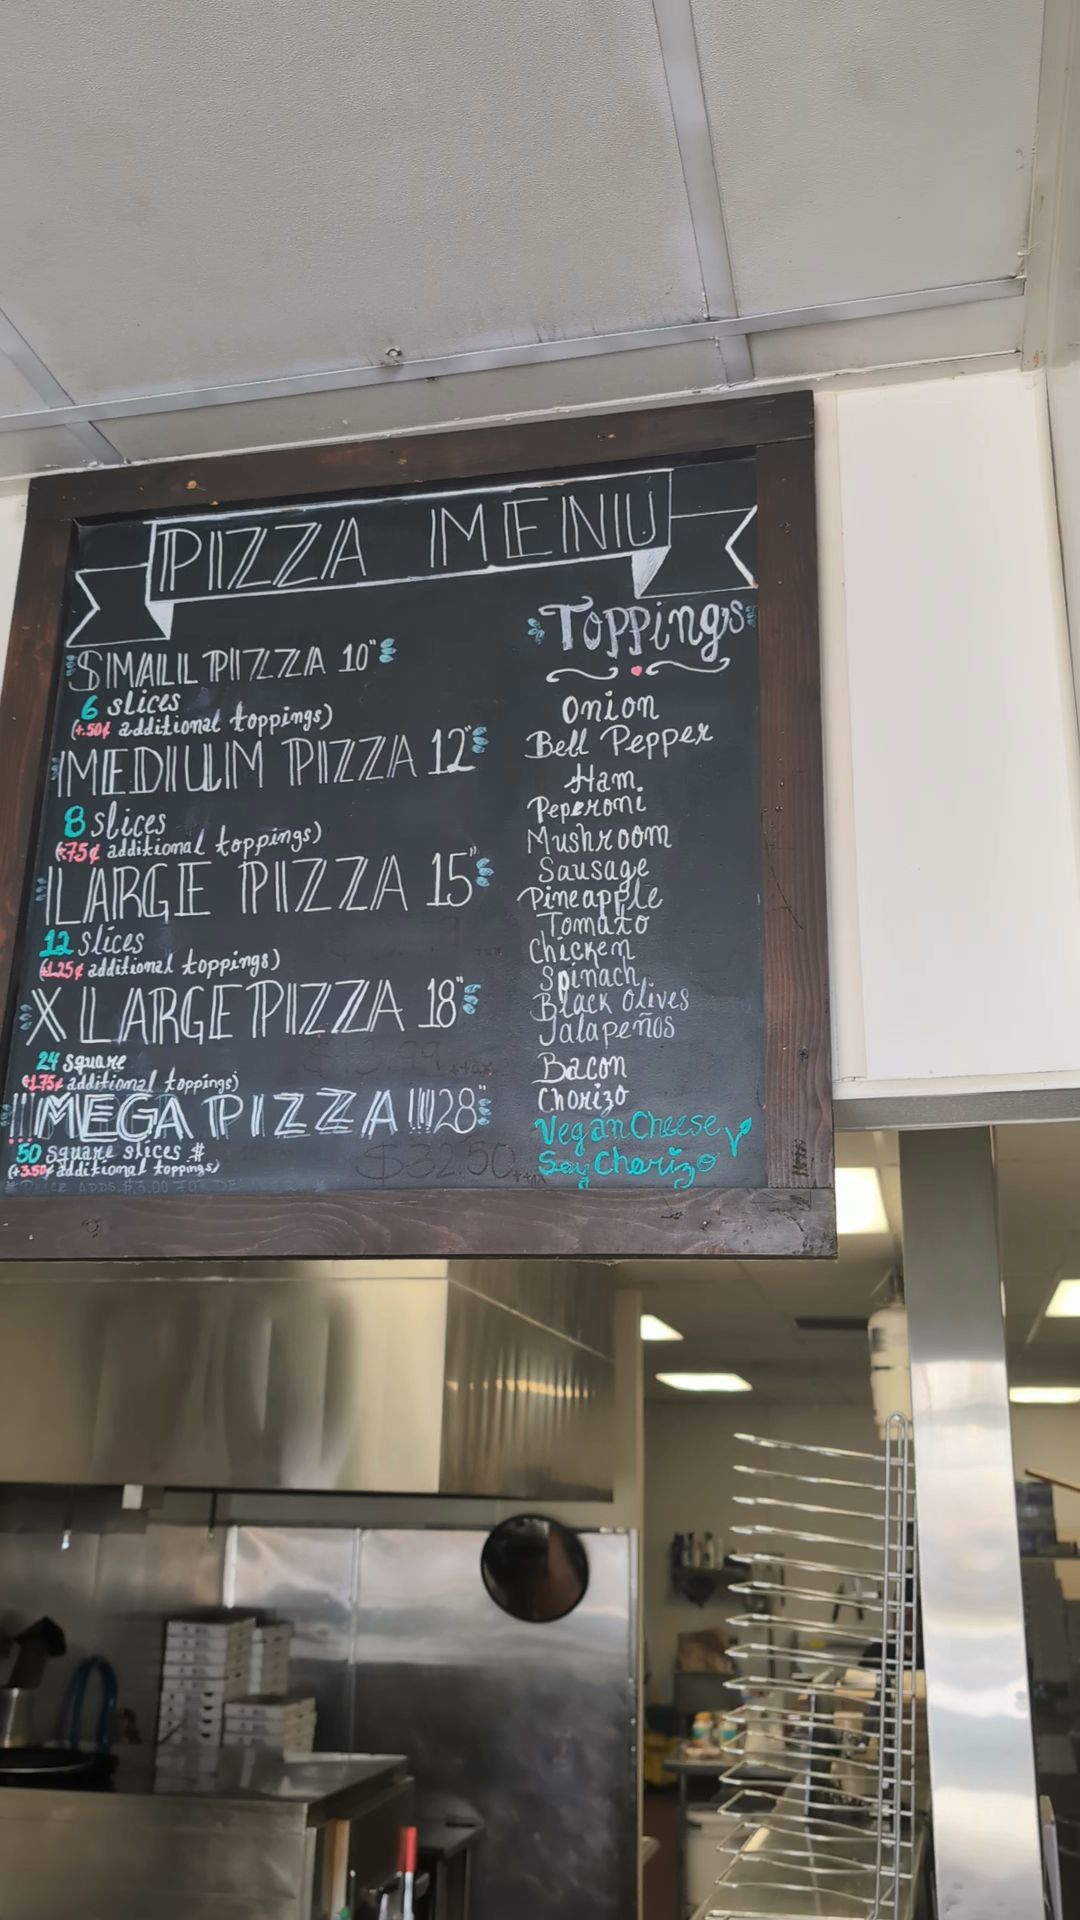 PIZZA MENU
SMALL PIZZA 10"
6 slices
(+.50¢ additional toppings)
MEDIUM PIZZA 12"
8 slices
(+.75¢ additional toppings)
LARGE PIZZA 15"
12 slices
(+1.25¢ additional toppings)
X LARGE PIZZA 18"
24 square
(+1.75¢ additional toppings)
$13.99 +tax
!!!MEGA PIZZA!!! 28"
50 square slices #
(+3.50¢ additional toppings)
$32.50 +tax
Toppings
Onion
Bell Pepper
Ham
Peperoni
Mushroom
Sausage
Pineapple
Tomato
Chicken
Spinach
Black Olives
Jalapeños
Bacon
Chorizo
Vegan Cheese
Soy Chorizo